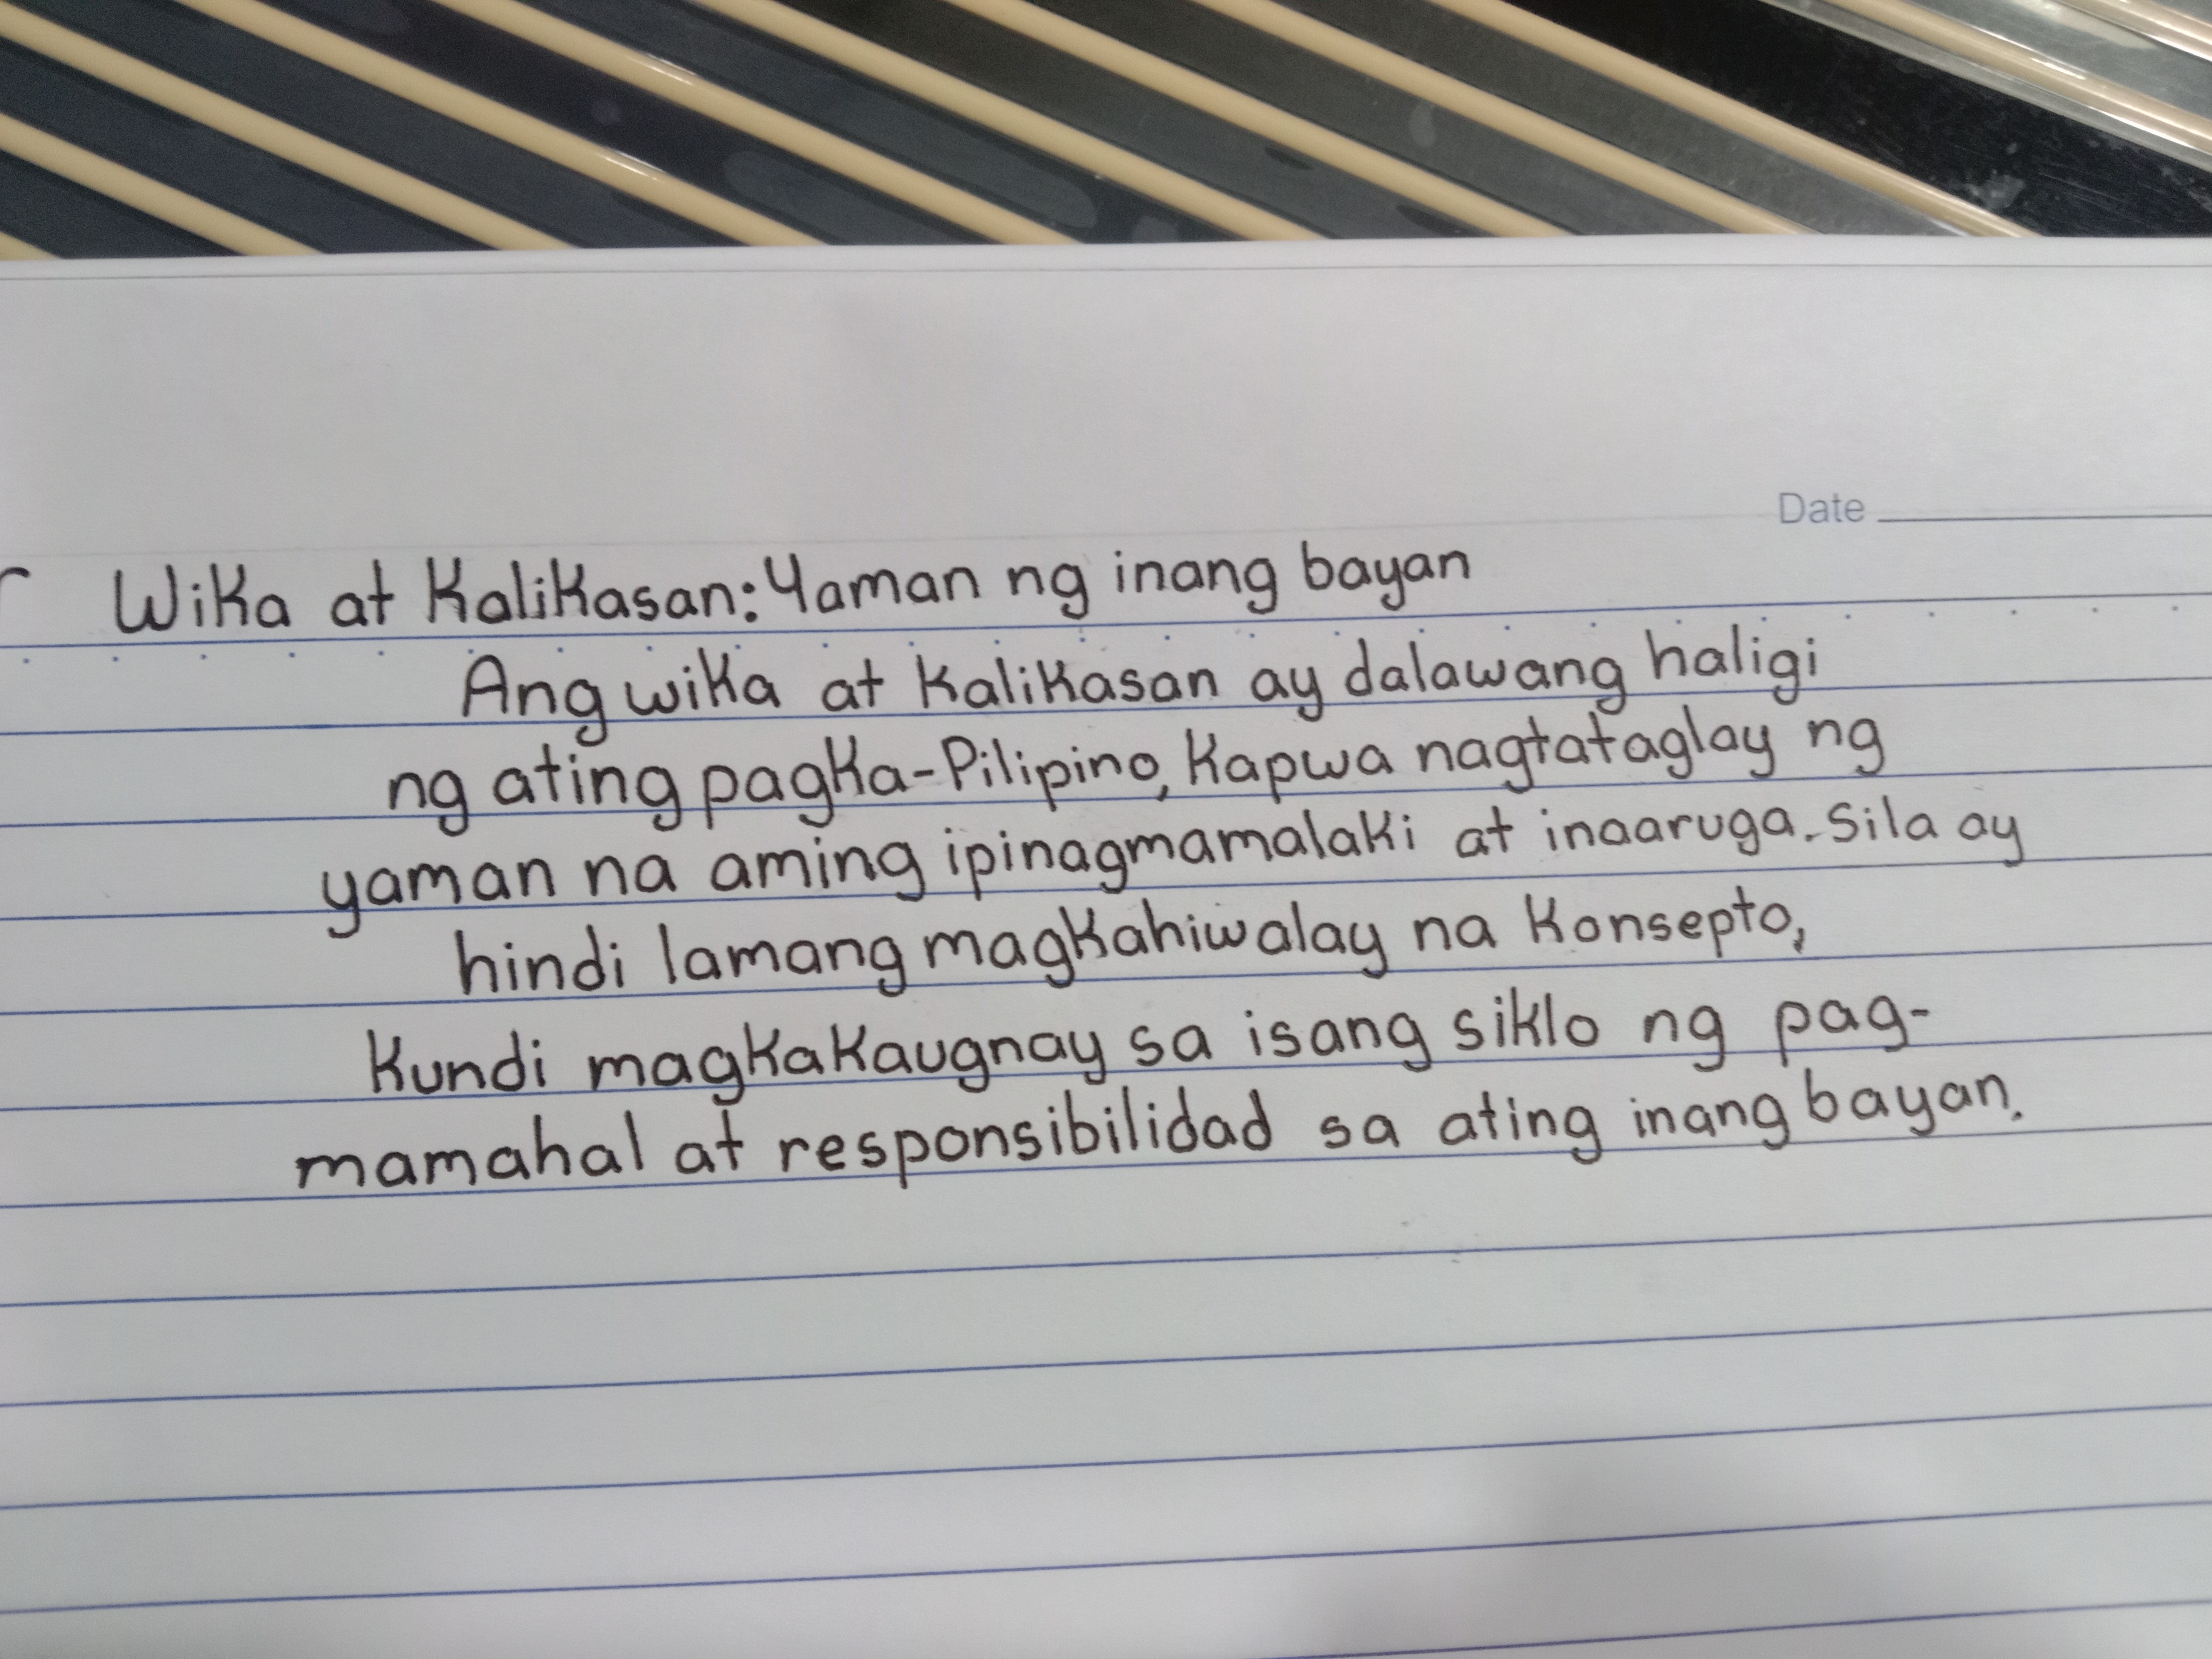 Date
Wika at Kalikasan: Yaman ng inang bayan
Ang wika at kalikasan ay dalawang haligi
ng ating pagka-Pilipino, kapwa nagtataglay ng
yaman na aming ipinagmamalaki at inaaruga. Sila ay
hindi lamang magkahiwalay na konsepto,
kundi magkakaugnay sa isang siklo ng pag-
mamahal at responsibilidad sa ating inang bayan.